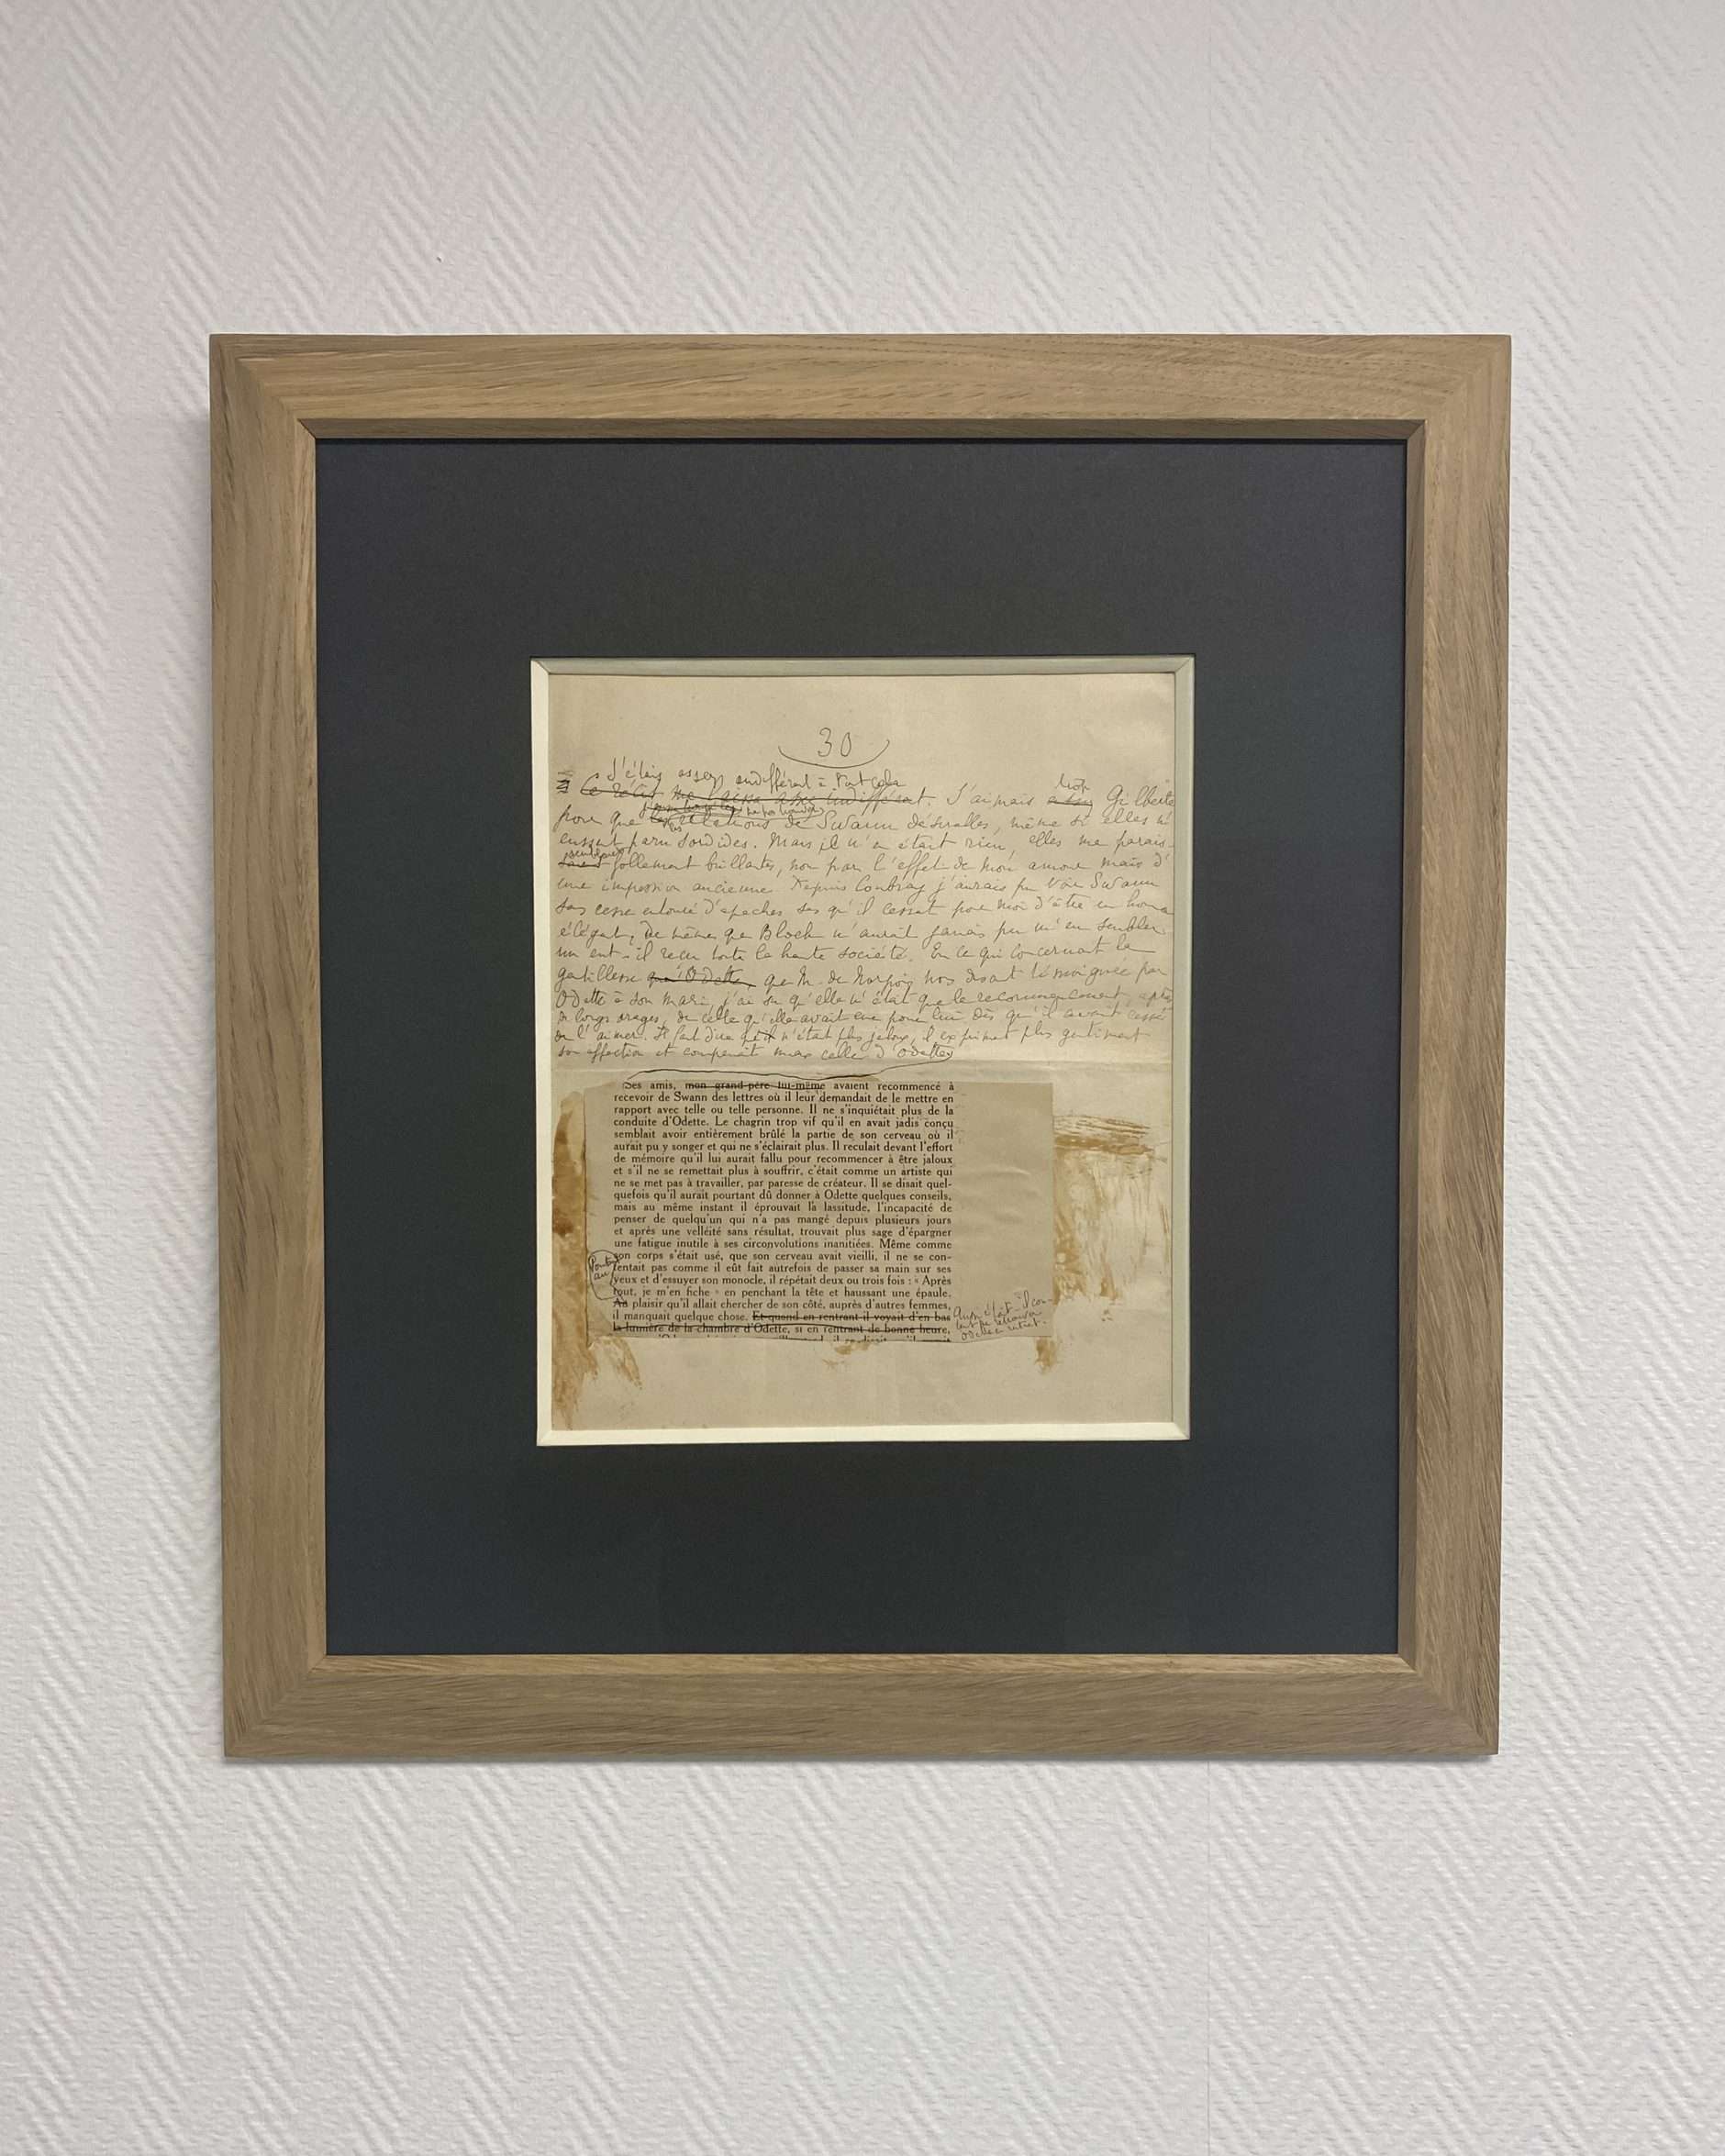 30
J'étais assez indifférent à tout cela
Ce récit me laissa assez indifférent. J'aimais trop Gilberte
pour que les relations de Swann dévoilées, même si elles m'
eussent paru sordides. Mais il n'en était rien, elles me parais-
saient follement brillantes, non par l'effet de mon amour mais d'
une impression ancienne. Depuis Combray j'aurais pu voir Swann
sans cesse entouré d'apaches sans qu'il cessât pour moi d'être un homme
élégant, de même que Bloch n'aurait jamais pu m'en sembler
un eut-il reçu toute la haute société. En ce qui concernait la
gentillesse qu'Odette, que M. de Norpois nous disait témoignée par
Odette à son mari, j'ai su qu'elle n'était que le recommencement, après
de longs orages, de celle qu'elle avait eue pour lui dès qu'il avait cessé
de l'aimer. Il faut dire qu'il n'était plus jaloux, il exprimait plus gentiment
son affection et comprenait mieux celle d'Odette
Des amis, mon grand-père lui-même avaient recommencé à
recevoir de Swann des lettres où il leur demandait de le mettre en
rapport avec telle ou telle personne. Il ne s'inquiétait plus de la
conduite d'Odette. Le chagrin trop vif qu'il en avait jadis conçu
semblait avoir entièrement brûlé la partie de son cerveau où il
aurait pu y songer et qui ne s'éclairait plus. Il reculait devant l'effort
de mémoire qu'il lui aurait fallu pour recommencer à être jaloux
et s'il ne se remettait plus à souffrir, c'était comme un artiste qui
ne se met pas à travailler, par paresse de créateur. Il se disait quel-
quefois qu'il aurait pourtant dû donner à Odette quelques conseils,
mais au même instant il éprouvait la lassitude, l'incapacité de
penser de quelqu'un qui n'a pas mangé depuis plusieurs jours
et après une velléité sans résultat, trouvait plus sage d'épargner
une fatigue inutile à ses circonvolutions inanitiées. Même comme
son corps s'était usé, que son cerveau avait vieilli, il ne se con-
tentait pas comme il eût fait autrefois de passer sa main sur ses
yeux et d'essuyer son monocle, il répétait deux ou trois fois : « Après
tout, je m'en fiche » en penchant la tête et haussant une épaule.
Au plaisir qu'il allait chercher de son côté, auprès d'autres femmes,
il manquait quelque chose. Et quand en rentrant il voyait d'en bas
la lumière de la chambre d'Odette, si en rentrant de bonne heure,
Pourtant
au
Aussi était-il con-
tent de retrouver
Odette